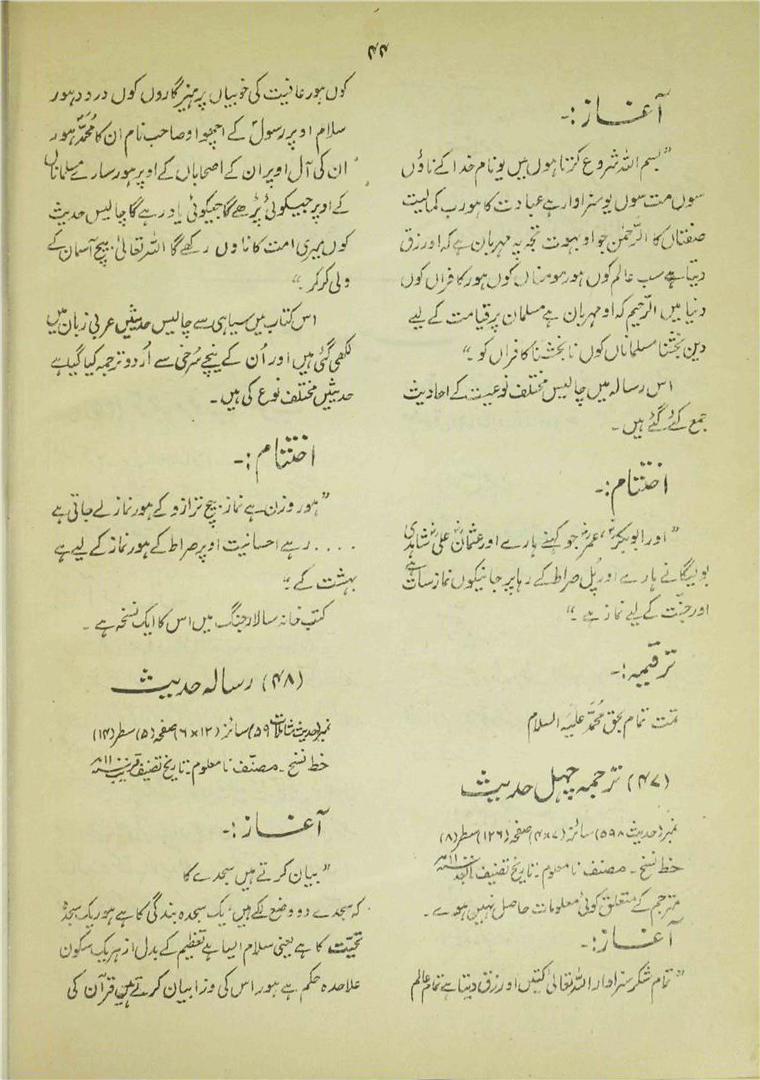 ۴۴
آغاز:-
"بسم اللہ شروع کرتا ہوں میں یو نام خدا کے ناؤں
سوں مت سوں یو سزاوار ہے عبادت کا ہور رب کمالیت
صفتاں کا الرّحمٰن جو او بہوت تجھ پہ مہربان ہے کہ او رزق
دیتا ہے سب عالم کوں ہور مومناں کوں ہور کافراں کوں
دنیا میں الرّحیم کہ او مہربان ہے مسلمان پر قیامت کے لیے
دین بخشنا مسلماناں کوں نا بخشنا کافراں کو۔"
اس رسالہ میں چالیس مختلف نوعیت کے احادیث
جمع کئے گئے ہیں۔
اختتام:-
"اور ابوبکرؓ، عمرؓ جو کہنے ہارے اور عثمانؓ علیؓ شاہدی
بولیگانے ہارے اور پُل صراط کے رہا پر جانیکوں نماز سات ہے
اور جنّت کے لیے نماز ہے۔"
ترقیمہ:-
تمت تمام بحق محمدؐ علیہ السلام
(۴۷) ترجمہ چہل حدیث
نمبر (حدیث ۵۹۸) سائز (۷×۴) صفحہ (۱۲۶) سطر (۸)
خط نسخ۔ مصنف نا معلوم۔ تاریخ تصنیف مابعد ۱۱۰۰ھ
مترجم کے متعلق کوئی معلومات حاصل نہیں ہوے۔
آغاز:-
"تمام شکر سزاوار اللہ تعالیٰ کتیں اور رزق دیتا ہے تمام عالم
کوں ہور عافیت کی خوبیاں پرہیزگاروں کوں درود ہور
سلام اوپر رسولؐ کے اچھو او صاحب نام ان کا محمدؐ ہور
ان کی آل اوپر ان کے اصحاباں کے اوپر ہور سارے مسلماناں
کے اوپر جیکوئی پڑھے گا جیکوئی یاد رہے گا چالیس حدیث
کوں میری امت کا ناوں رکھے گا اللہ تعالیٰ بیچ آسمان کے
ولی کر کر۔"
اس کتاب میں سیاہی سے چالیس حدیثیں عربی زبان میں
لکھی گئی ہیں اور اُن کے نیچے سُرخی سے اُردو ترجمہ کیا گیا ہے
حدیثیں مختلف نوع کی ہیں۔
اختتام:-
"ہور وزن ہے نماز بیچ ترازو کے ہور نماز لے جاتی ہے
.... رہے احسانیت اوپر صراط کے ہور نماز کے لیے ہے
بہشت کے۔"
کتب خانہ سالار جنگ میں اس کا ایک نسخہ ہے۔
(۴۸) رسالہ حدیث
نمبر (حدیث شاملات ۵۹) سائز (۱۲×۶) صفحہ (۵) سطر (۱۴)
خط نسخ۔ مصنف نا معلوم۔ تاریخ تصنیف قریب ۱۱۰۰ھ
آغاز:-
"بیان کرتے ہیں سجدے کا
کہ سجدے دو وضع کے ہیں، یک سجدہ بندگی کا ہے ہور یک سجدہ
تحیّت کا ہے یعنی سلام ایسا ہے تعظیم کے بدل از ہر یک سکون
علاحدہ حکم ہے ہور اس کی وزا بیان کرتے ہیں قرآن کی